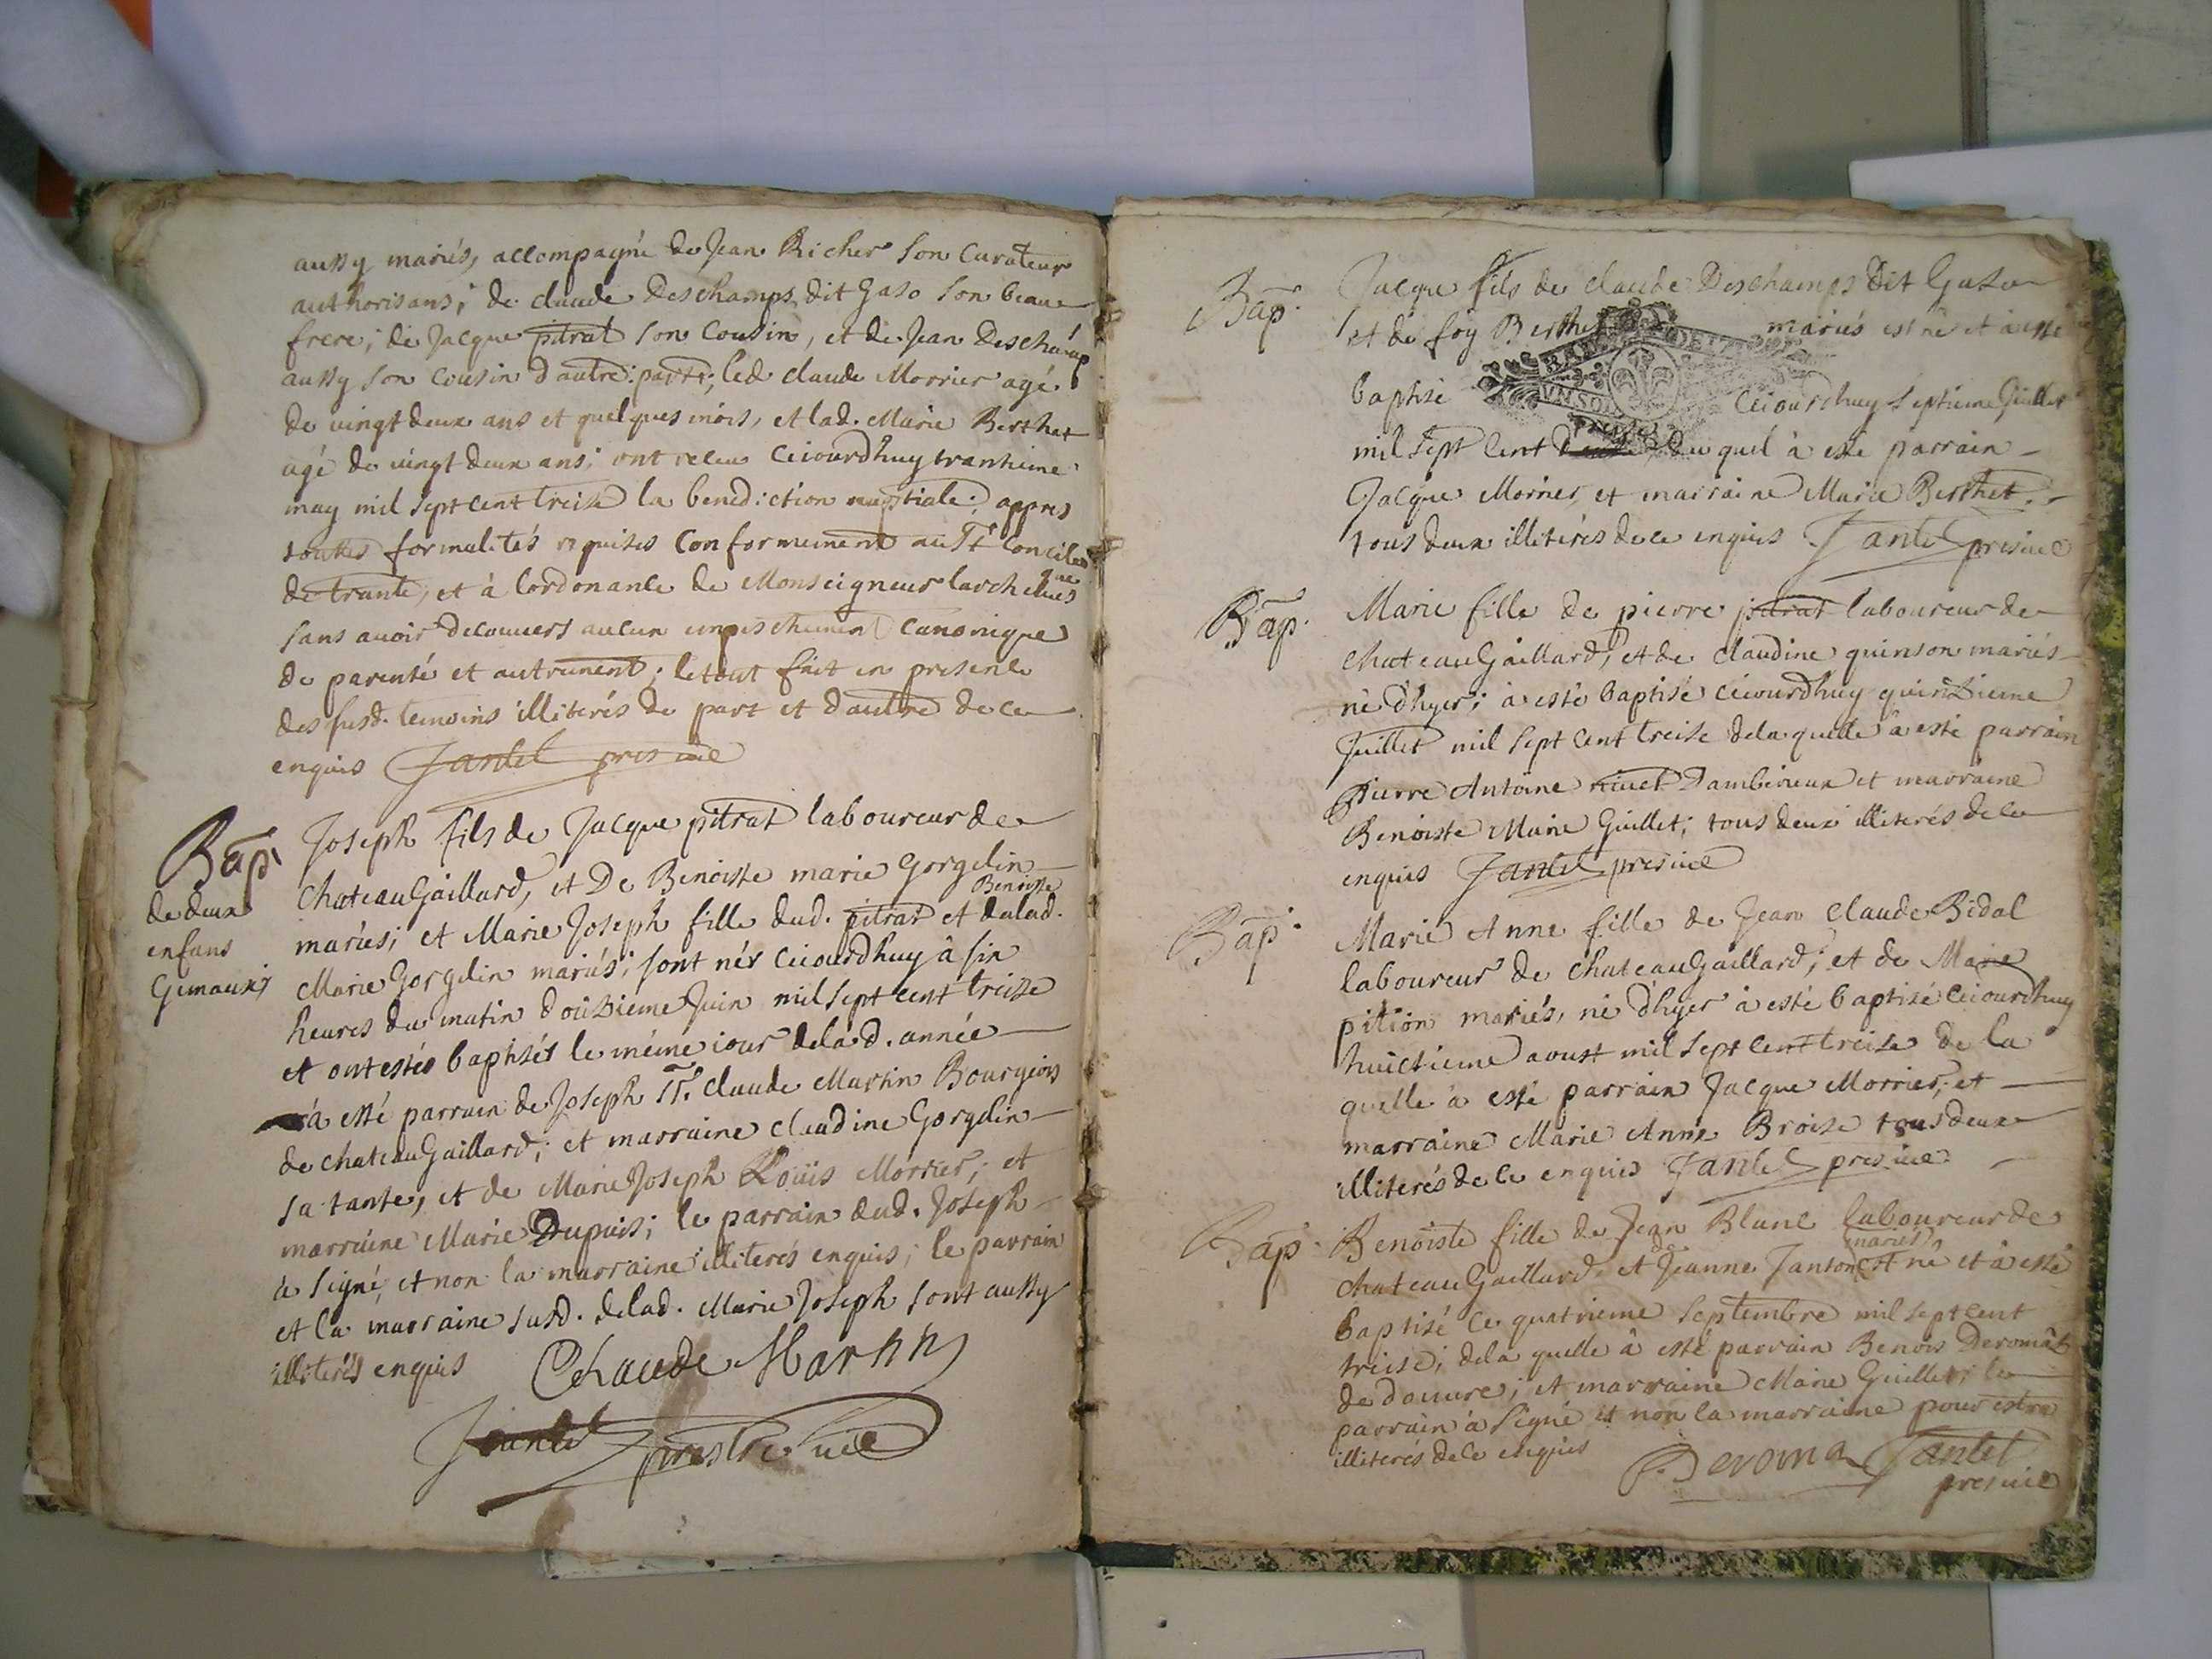 aussy mariés, accompagné de Jean Richer son Curateur
authorisans; de claude Deschamps, dit Gaso son beau
frere; de Jacque pitrat son Cousin, et de Jean Deschamp
aussy son cousin d'autre: part; led. claude Morrier agé
de vingt deux ans et quelques mois, et lad. Marie Berthet
agé de vingt deux ans; ont receu ceiourdhuy trantieme
may mil sept cent treise la benediction nuptiale; appres
toutes formalités requises Conformement au St Concile
de trante, et à lordonance de Monseigneur larcheveque
sans avoir decouvert aucun empeschement Canonique
de parenté et autrement; le tout fait en presence
des susd. temoins illiterés de part et d'autre de ce
enquis Jantet pres vic
Bap.
de deux
enfans
Gemaux
Joseph fils de Jacque pitrat laboureur de
chateauGaillard, et De Benoiste marie Gorgelin
mariés; et Marie Joseph fille dud. pitrat et delad. Benoiste
Marie Gorgelin mariés; sont nés ceiourdhuy à six
heures du matin douzieme Juin mil sept cent treize
et ont estés baptisés le méme iour delad. année
à esté parrain de Joseph Sr. claude Martin Bourgeois
de chateauGaillard; et marraine claudine Gorgelin
sa tante, et de Marie Joseph Loüis Morrier; et
marraine Marie Dupuis; le parrain dud. Joseph
à signé, et non la marraine illiterés enquis; le parrain
et la marraine susd. delad. Marie Joseph sont aussy
illiterés enquis Claude Martin
Jantet prestre vic
Bap.
Jacque fils de claude Deschamps Dit Gaso
et de foy Berthet mariés est né et à esté
baptisé ceiourdhuy septieme Juillet
mil sept cent du quel à esté parrain
Jacque Morrier, et marraine Marie Berthet
tous deux illiterés de ce enquis Jantet pres vic
Bap.
Marie fille de pierre pitrat laboureur de
chateauGaillard, et de claudine quinson mariés
né d'hyer; à esté baptisé ceiourdhuy quinzieme
Juillet mil sept cent treise dela quelle à esté parrain
Pierre Antoine rivet Dambérieux et marraine
Benoiste Marie Guillet; tous deux illiterés de ce
enquis Jantet pres vic
Bap.
Marie Anne fille de Jean Claude Bidal
laboureur de chateauGaillard; et de Marie
pition mariés, né d'hyer à esté baptisé ceiourdhuy
huictieme aoust mil sept cent treise de la
quelle à esté parrain Jacque Morrier, et
marraine Marie Anne Broise tous deux
illiterés de ce enquis Jantet pres vic
Bap.
Benoiste fille de Jean Blanc laboureur de
chateauGaillard et de Jeanne Janton mariés est né et à esté
baptisé ce quatrieme septembre mil sept cent
treise; dela quelle à esté parrain Benois Deromat
de douvre; et marraine Marie Guillet; le
parrain à signé et non la marraine pour estre
illiterés de ce enquis B. Deroma Jantet
pres vic